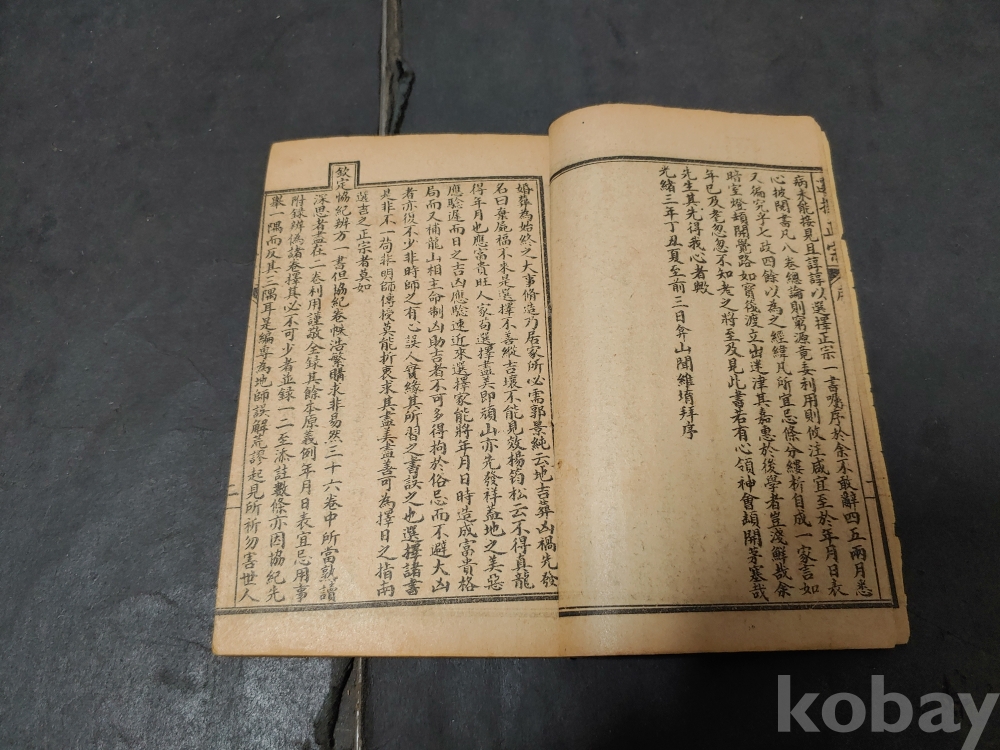 選擇正宗 序
病未能接見且諄諄以選擇正宗一書囑序於余不敢辭四五兩月悉
心披閱書凡八卷總論則窮源竟委利用則攸注咸宜至於年月日表
又編定字七政四餘以為之經緯凡所宜忌條分縷析自成一家言如
暗室燈頓開覺路如寶筏渡立出迷津其嘉惠於後學者豈淺鮮哉余
年巳及老忽忽不知老之將至及見此書若有心領神會頓開茅塞哉
先生其先得我心者歟
光緒三年丁丑夏至前三日弇山聞維堉拜序
婚葬為始終之大事脩造乃居家所必需郭景純云地吉葬凶禍先發
名曰棄屍福不來是選擇不善縱吉壤不能見效楊筠松云不得真龍
得年月也應富貴旺人家苟選擇盡美即頑山亦先發祥蓋地之美惡
應驗遲而日之吉凶應驗速近來選擇家能將年月日時造成富貴格
局而又補龍山相主命制凶助吉者不可多得拘於俗忌而不避大凶
者亦復不少非時師之有心誤人實緣其所習之書誤之也選擇諸書
是非不一苟非明師傳授莫能折衷求其盡美盡善可為擇日之指南
選吉之正宗者莫如
欽定協紀辨方一書但協紀卷帙浩繁購求非易然三十六卷中所當熟讀
深思者盡在二卷利用謹敬全錄其餘本原義例年月日表宜忌用事
附錄辨偽諸卷擇其必不可少者並錄一二至添註數條亦因協紀先
舉一隅而反其三隅耳是編專為地師誤解荒謬起見所祈勿害世人
kobay